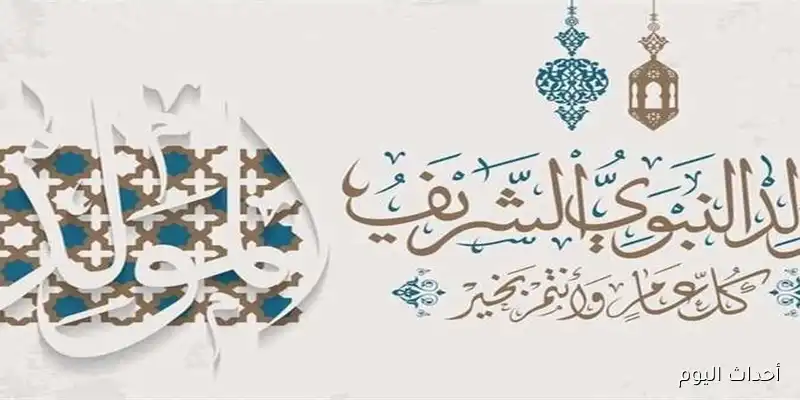 المولد
المولد النَّبَوِيُّ الشَّرِيفُ
كُلُّ عَامٍ وَأَنْتُمْ بِخَيْرٍ
أحداث اليوم